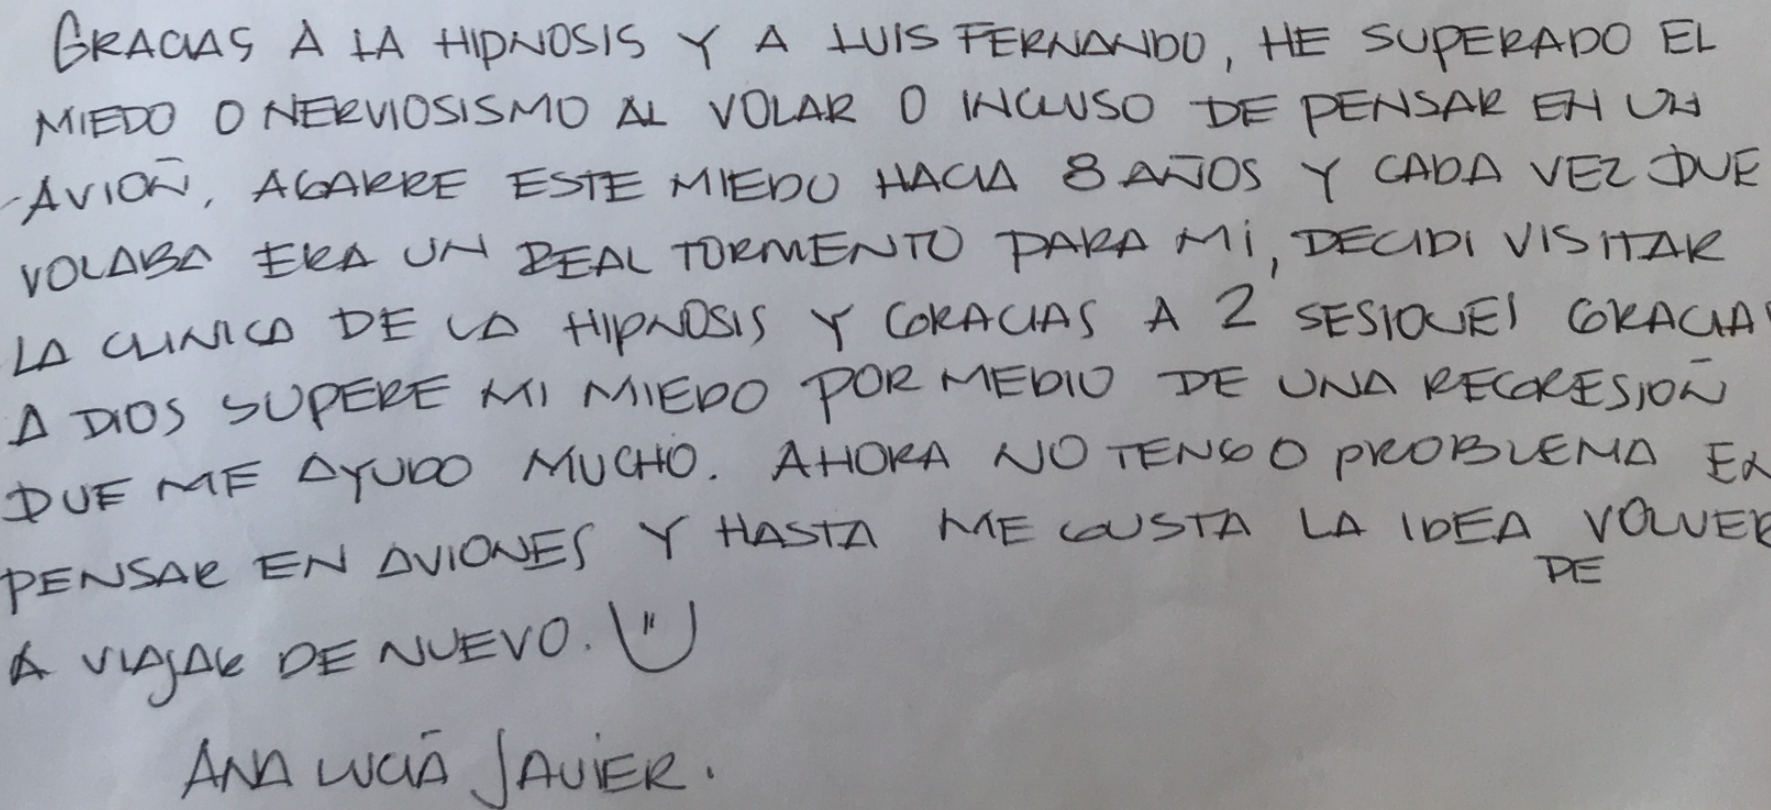 GRACIAS A LA HIPNOSIS Y A LUIS FERNANDO, HE SUPERADO EL
MIEDO O NERVIOSISMO AL VOLAR O INCLUSO DE PENSAR EN UN
AVIÓN, AGARRE ESTE MIEDO HACIA 8 AÑOS Y CADA VEZ QUE
VOLABA ERA UN REAL TORMENTO PARA MI, DECIDI VISITAR
LA CLINICA DE LA HIPNOSIS Y GRACIAS A 2 SESIONES GRACIAS
A DIOS SUPERE MI MIEDO POR MEDIO DE UNA REGRESIÓN
QUE ME AYUDO MUCHO. AHORA NO TENGO PROBLEMA EN
PENSAR EN AVIONES Y HASTA ME GUSTA LA IDEA DE VOLVER
A VIAJAR DE NUEVO.
ANA LUCÍA JAVIER.